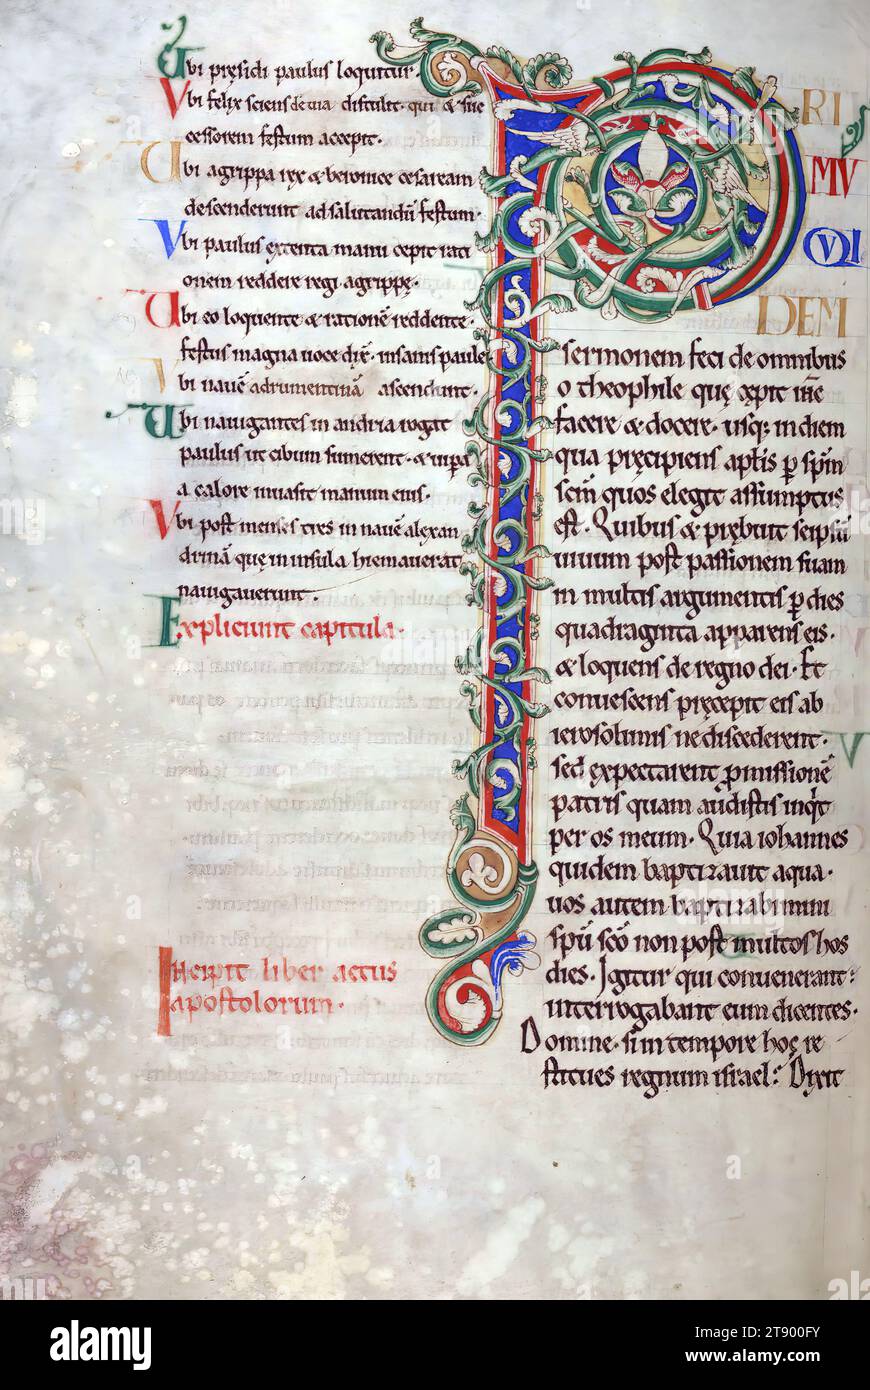 Ubi pręsidi paulus loquitur.
Vbi felix sciens de uia distulit. qui & suc
cessorem festum accepit.
Ubi agrippa rex & beronice cesaream
descenderunt ad salutandū festum.
Vbi paulus extenta manu cepit rati
onem reddere regi agrippę.
Ubi eo loquente & rationē reddente.
festus magna uoce dix̄. insanis paule
Vbi nauē adrumentinā ascendunt.
Ubi nauigantes in andria rogat
paulus ut cibum sumerent. & uipa
a calore inuasit manum eius.
Vbi post menses tres in nauē alexan
drinā quę in insula hiemauerat
nauigauerunt.
Expliciunt capitula.
Incipit liber actus
apostolorum.
PRI
MV
QVI
DEM
sermonem feci de omnibus
o theophile quę cępit ihē
facere & docere. usq; in diem
qua pręcipiens aptīs p spm̄
scm̄ quos elegit assumptus
est. Quibus & prębuit seipsū
uiuum post passionem suam
in multis argumentis p dies
quadraginta apparens eis.
& loquens de regno dei. Et
conuescens pręcepit eis ab
ierosolimis ne discederent.
sed expectarent pmissionē
patris quam audistis inqt
per os meum. Quia iohannes
quidem baptizauit aqua.
uos autem baptizabimini
spū scō non post multos hos
dies. Igitur qui conuenerant:
interrogabant eum dicentes.
Domine. si in tempore hoc re
stitues regnum israel? Dixit
alamy
a
Image ID: 2T900FY
www.alamy.com